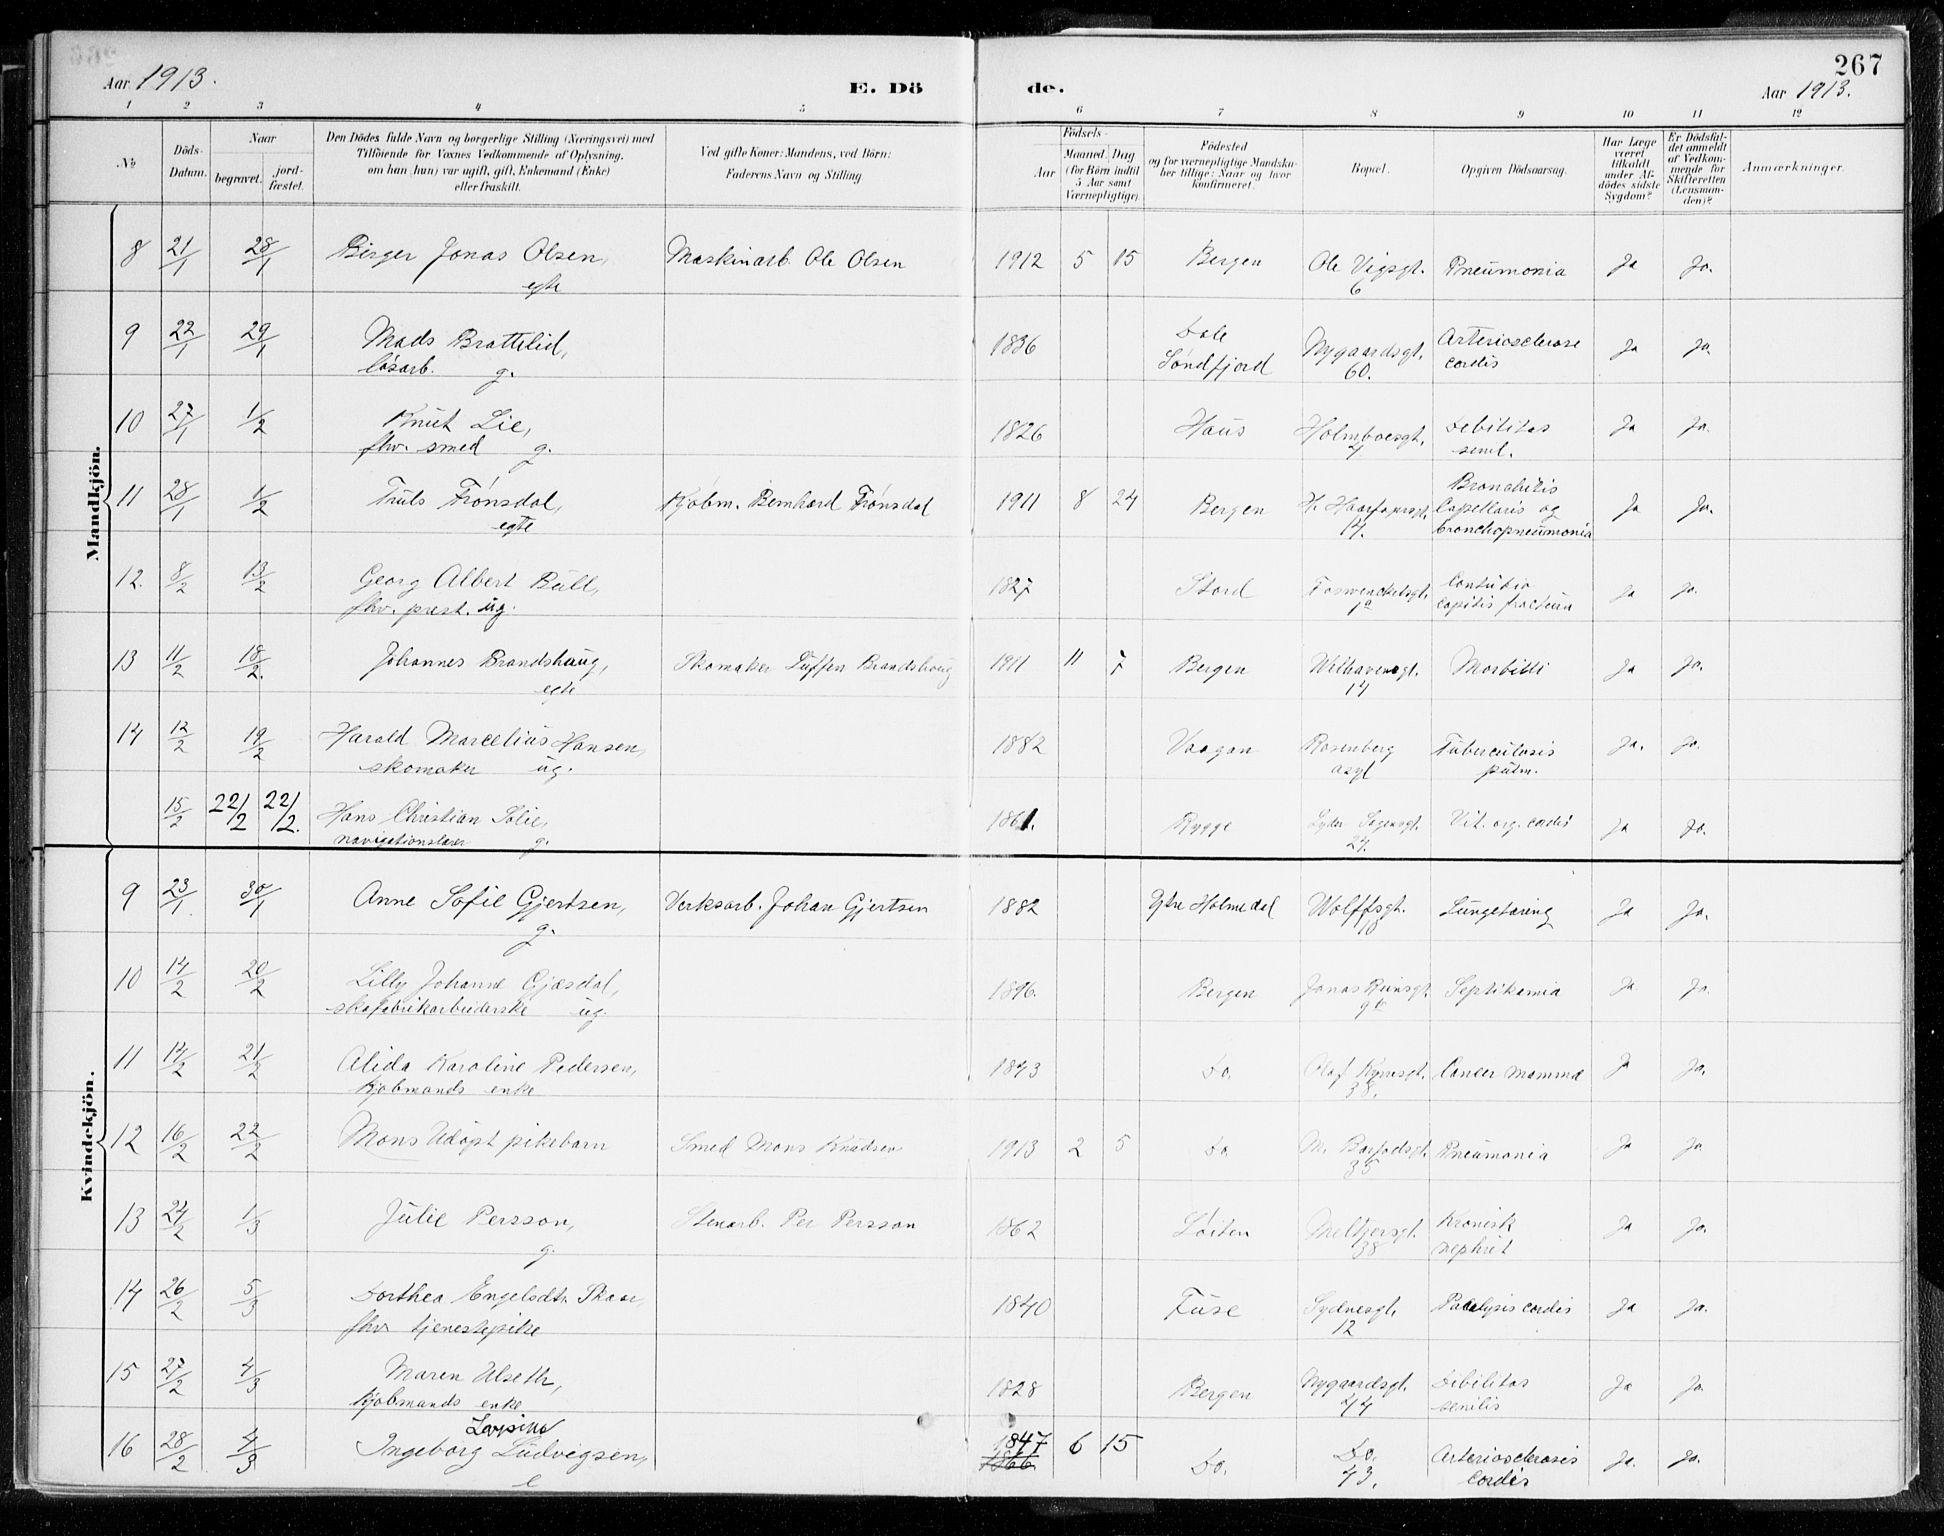 267
Aar 1913. E. Dö de. Aar 1913.
1 2 3 4 5 6 7 8 9 10 11 12
No
Döds-Datum.
Naar
begravet.
jord-fæstet.
Den Dödes fulde Navn og borgerlige Stilling (Næringsvei) med
Tilföiende for Voxnes Vedkommende af Oplysning,
om han (hun) var ugift, gift, Enkemand (Enke)
eller fraskilt.
Ved gifte Koner: Mandens, ved Börn:
Faderens Navn og Stilling.
Födsels-
Aar
Maaned. Dag
(for Börn indtil
5 Aar samt
Værnepligtige).
Födested
og for værnepligtige Mandska-
ber tillige: Naar og hvor
konfirmeret.
Bopæl.
Opgiven Dödsaarsag.
Har Læge
været
tilkaldt
under Af-
dödes sidste
Sygdom?
Er Dödsfal-
det anmeldt
af Vedkom-
mende for
Skifteretten
(Lensman-
den)?
Anmærkninger.
Mandkjön.
8 21/1 28/1 Birger Jonas Olsen, Maskinarb. Ole Olsen 1912 5 15 Bergen Ole Vigsgt. Pneumonia Ja Ja.
egte 6
9 22/1 29/1 Mads Brattelid, 1836 Dale Nygaardsgt. Arteriosclerose Ja Ja.
løsarb. g. Søndfjord 60. cordis
10 27/1 1/2 Knut Lie, 1826 Haus Holmboesgt. Debilitas Ja Ja.
fhv. smed g. senil.
11 28/1 1/2 Truls Frønsdal, Kjøbm. Bernhard Frønsdal 1911 8 24 Bergen H. Haarfagresgt. Bronchitis Ja Ja.
egte 17. Capellaris og
bronchopneumonia
12. 8/2 13/2 Georg Albert Bull, 1827 Stord Contusio Ja Ja.
fhv. prest. ug. 1a capitis fractura
13 11/2 18/2. Johannes Brandshaug, Skomaker Brandshaug 1911 11 7 Bergen Welhavensgt. Morbilli Ja Ja.
egte 14
14 12/2 19/2 Harald Marcelius Hansen, 1882 Vaagan Rosenberg Tuberculosis Ja. Ja.
skomaker ug. asyl pulm.
15/2 22/2 22/2. Hans Christian Solie, 1861. Rygge Lyder Sagensgt. Vit. org. cordis Ja Ja.
navigationslærer g. 24.
Kvindekjön.
9 23/1 30/1 Anne Sofie Gjertsen, Verksarb. Johan Gjertsen 1882 Ytre Holmedal Wolffsgt. Lungetæring Ja Ja.
g. 10
10 14/2 20/2 Lilly Johanne Gjæsdal, 1896. Bergen Jonas Reinsgt. Septikæmia Ja Ja.
skofabrikarbeiderske ug. 9b
11 14/2 21/2 Alida Karoline Pedersen, 1843 Do. Olaf Kyrresgt. Cancer mammæ Ja Ja.
Kjøbmands enke 38.
12 16/2 22/2 Mons Udøpt pikebarn Smed Mons Knudsen 1913 2 5 Do. M. Barfodsgt. Pneumonia Ja Ja
35
13 24/2 1/3 Julie Persson, Stenarb. Per Persson 1862 Løiten Meltzersgt. Kronisk Ja Ja.
g. 38 nephrit
14 26/2 5/3 Dorthea Engelsdtr. Skaar, 1840 Fuse Sydnesgt. Paralysis cordis Ja Ja.
fhv. tjenestepike 12
15 27/2 4/3 Maren Ulseth, 1828 Bergen Nygaardsgt. Debilitas Ja Ja.
Kjøbmands enke 44 senilis
16 28/2 4/3 Ingeborg Lovsine Ludvigsen, 1847 6 15 Do. Do. Arteriosclerosis Ja. Ja.
e 1866. 43. Cordis